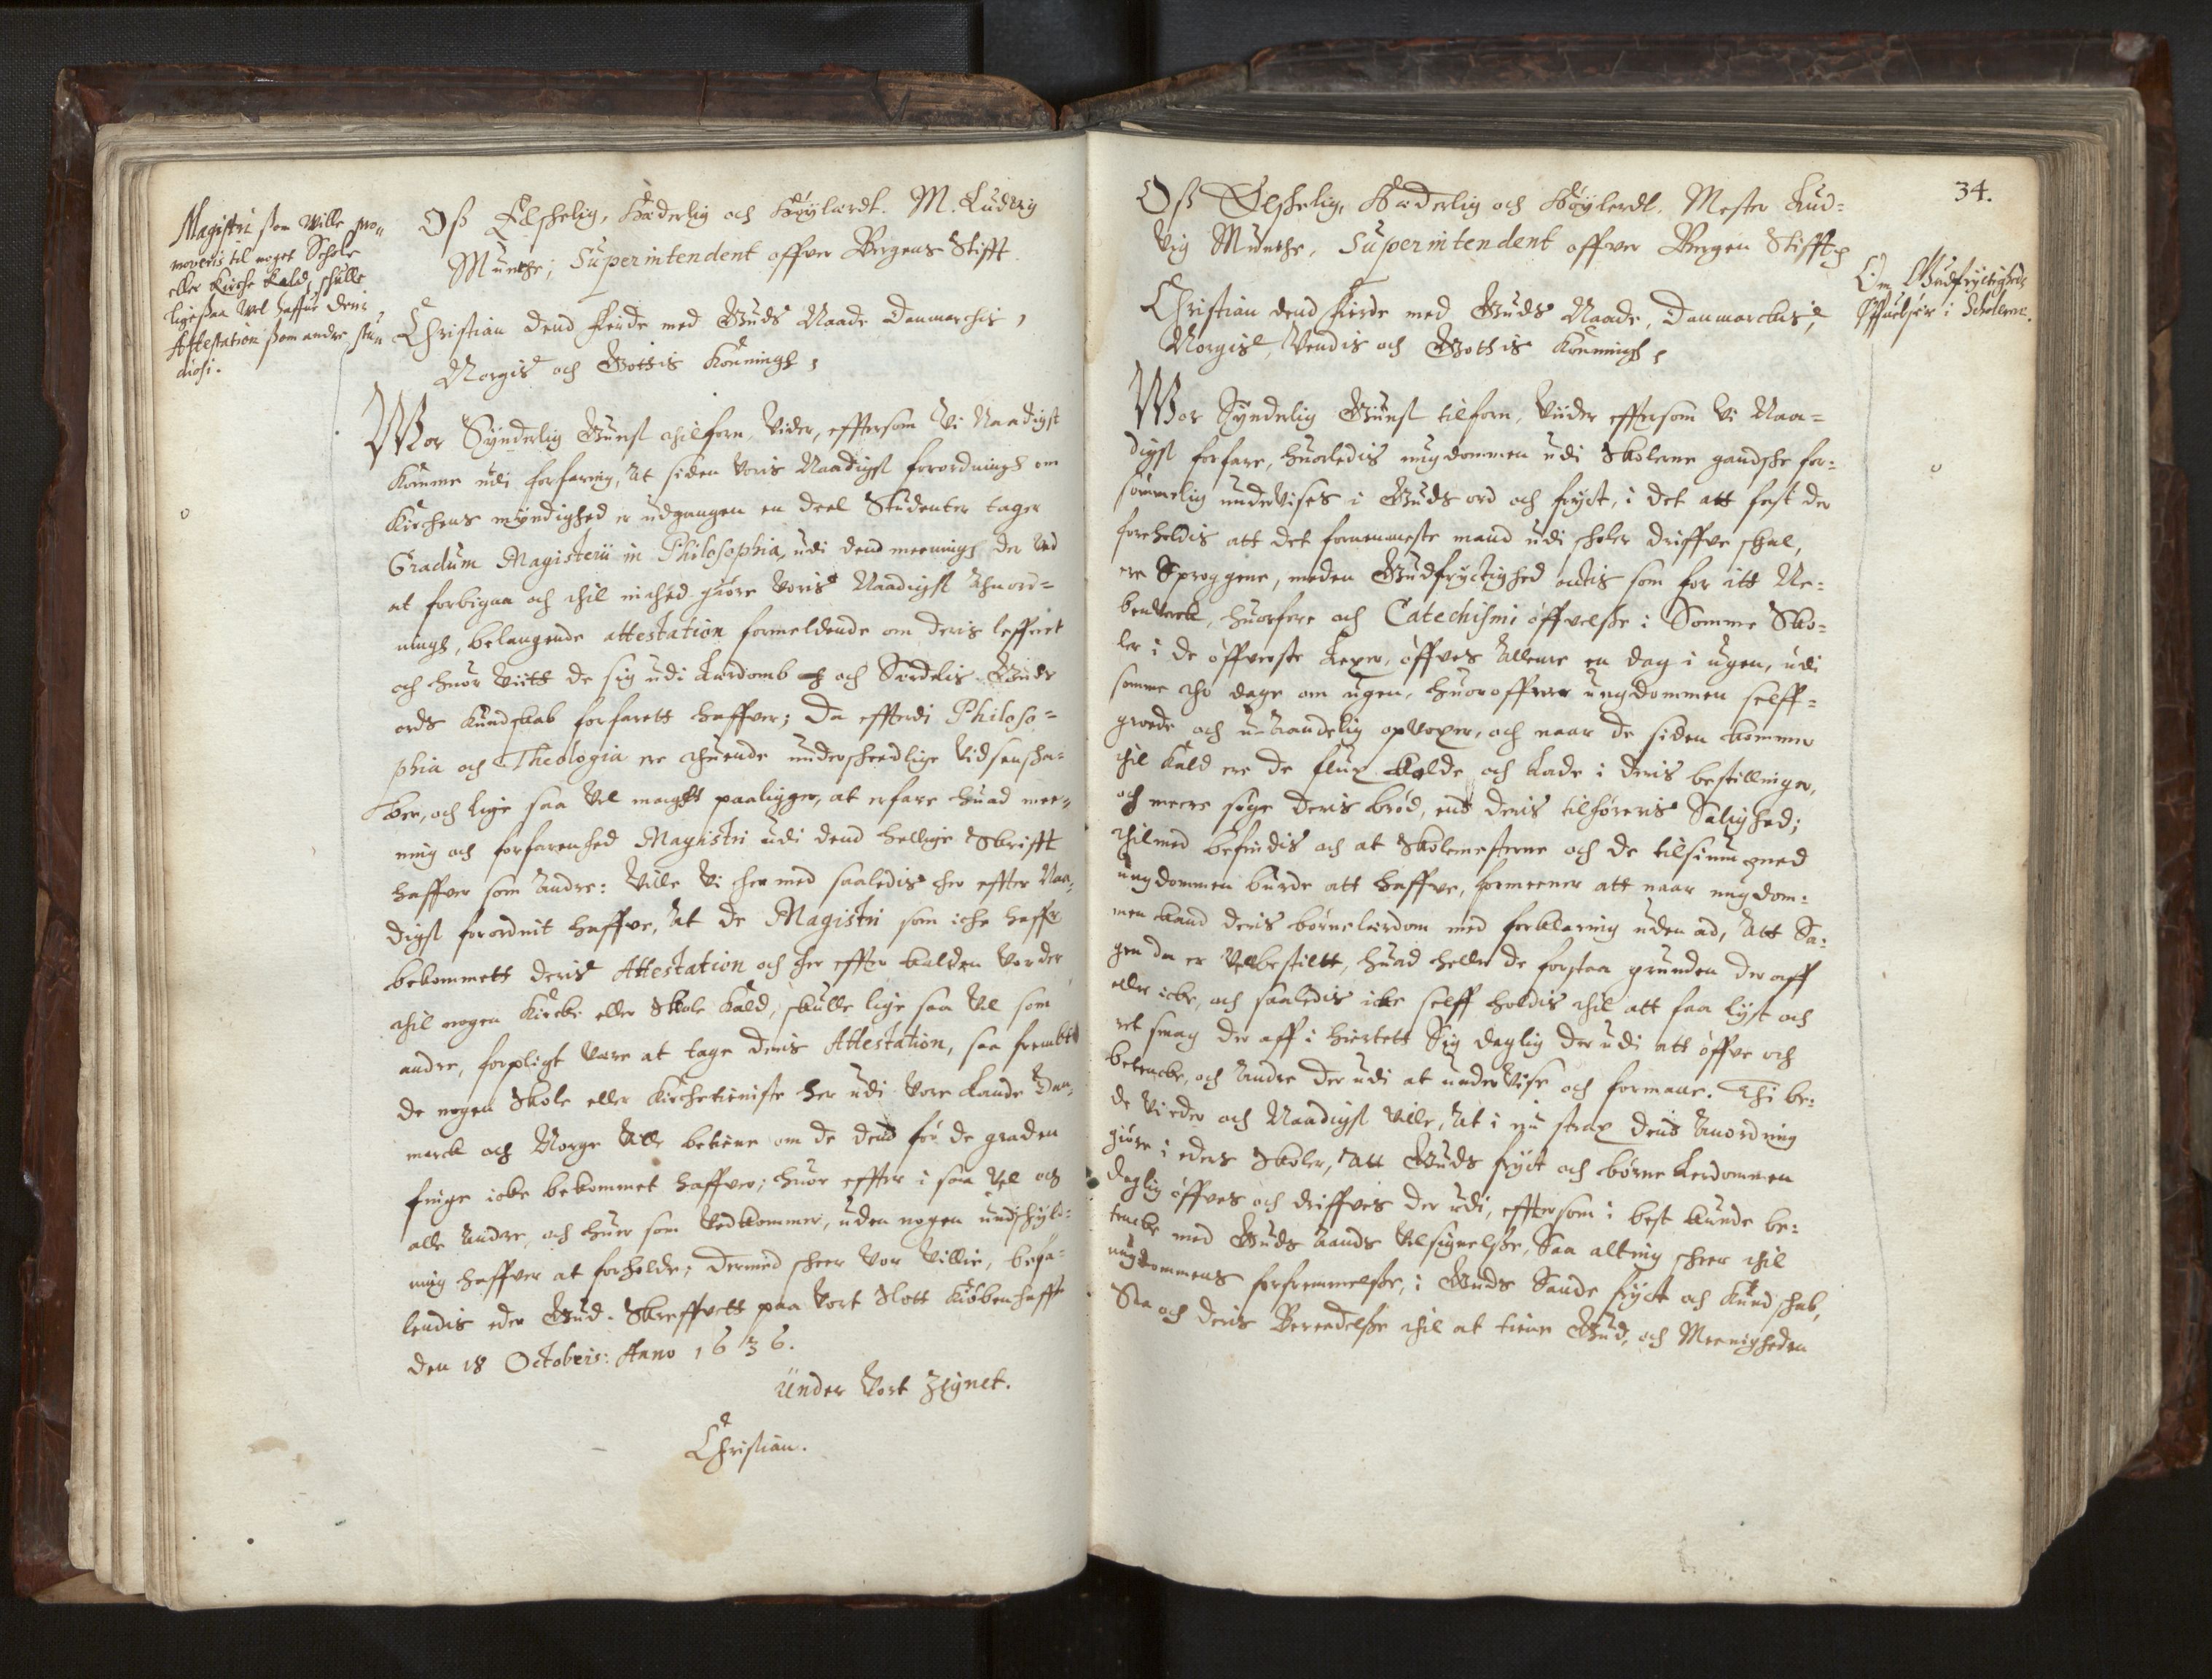 Magistri som wille pro-
moveris til noget Schole
eller Kirche Kald, schulle
ligesaa wel haffue deris
Attestation som andre stu-
diosi.
Oß Elschelig, Hæderlig och Høylærdt. M. Ludvig
Munthe, Superintendent offver Bergens Stifft.
Christian dend fierde med Guds Naade Danmarchis,
Norgis och Gottis Konningh,
Wor Synderlig Gunst tilforn, Vider, efftersom Vi Naadigst
Komme udi forfaring, at siden Voris Naadigst forordningh om
Kirchens myndighed er udgangen en deel Studenter tager
Gradum Magisterii in Philosophia, udi dend meenungh der ved
at forbigaa och til intched giøre Voris Naadigst Anord-
ningh, belangende attestation formeldende om deris leffnet
och huor Viitt de sig udi Lærdomb och Særdelis Guds
ords Kundskab forfarett haffver; Da effterdi Philoso-
phia och Theologia ere thuende underscheedlige Vidsensca-
ber, och lige saa Vel macht paaligger, at erfare huad mee-
ning och forfarenhed Magistri udi dend hellige Skrifft
haffver som Andre: Ville Vi her med saaledis her effter Naa-
digst forordnit haffve, At de Magistri som iche haffr
bekommett deris Attestation och her effter kalden Vorder
til nogen Kircke eller Skole Kald, skulle lige saa Vel som
andre, forpligt Være at tage deris Attestation, saa frembt
de nogen Skole eller Kirchetieniste her udi Vore Lande Dan-
marck och Norge Ville betiene om de dend før de graden
finge icke bekommet haffver; huor effter i saa Vel och
alle Andre, och huer som Vedkommer, uden nogen undschyld-
ning haffver at forholde; Dermed scheer Vor Villie, befa-
lendis eder Gud. Skreffvett paa Vort Slott Kiøbenhaffn
den 18 Octobris: Anno 1636.
Under Vort Zignet.
Christian.
34.
Oß Elschelig, Hæderlig och Høylerdt, Mester Lud-
vig Munthe, Superintendent offver Bergen Stifft
Christian dend fierde med Guds Naade, Danmarckis,
Norgis, Vendis och Gothis Konningh,
Om Gudfryctigheds
Øffuelser i Scholerne.
Wor Synderlig Gunst tilforn, Viider efftersom Vi Naa-
digst forfare, huorledis ungdommen udi Skolerne gandsche for-
sømmelig underVises i Guds ord och fryct, i det att fast der
foreholdis att det fornemmeste mand udi scholer driffve schal,
ere Sproggene, meden Gudfryctighed actis som for itt Ne-
benVerck, huorfore och Catechismi øffvelsse i Somme Sko-
ler i de øffverste Lexer, øffves Allene en dag i ugen, udi
somme tho dage om ugen, huoroffver ungdommen selff-
groede och u-Aandelig opVoxer, och naar de siden kommer
til Kald ere de flux kolde och Lade i deris bestillinger,
och meere søge deris brød, end deris tilhøreris Salighed;
thilmed befindis och at Skolemesterne och de tilsinn med
ungdommen burde att haffve, formeener att naar ungdom-
men kand deris børnelærdom med forklaring uden ad, Att Sa-
gen da er Velbestillt, huad heller de forstaa grunden der aff
eller icke, och saaledis icke selff holdis til att faa lyst och
ret smag der aff i hiertett Sig daglig der udi att øffve och
betencke, och Andre der udi at underVise och formane. Thi be-
de Vi eder och Naadigst Ville, At i nu strax dend Anordning
giøre i eders Skoler, Att Guds fryct och børne Lerdommen
daglig øffves och driffves der udi, efftersom i best kunde be-
tencke med Guds Aands Velsignelsse, Saa alting scheer til
ungdommens forfremmelsse, i Guds Sande fryct och Kundschab,
Saa och deris Bereedelsse til at tiene Gud, och Meenigheden